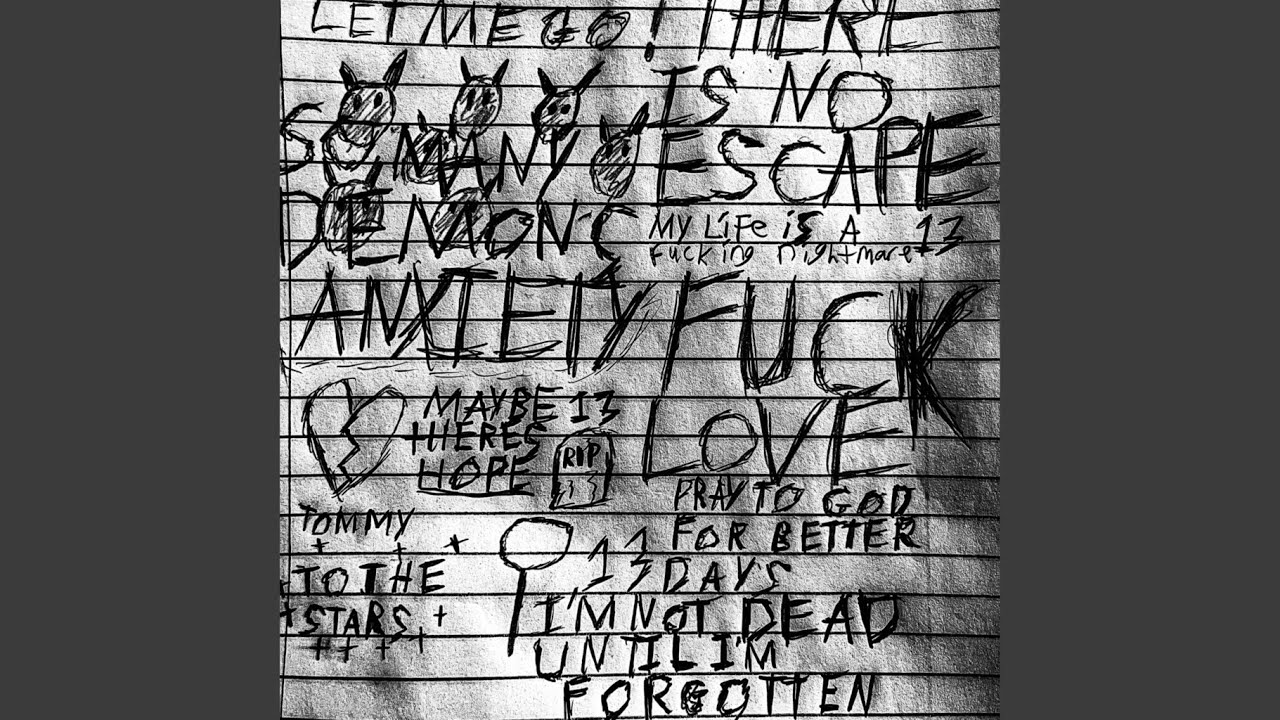 LET ME GO! THERE
IS NO
ESCAPE
SO MANY
DEMONS
MY LiFe iS A
fucking nightmare 13
ANXIETY
FUCK
LOVE
MAYBE 13
tHERES
HOPE
RIP
PRAY TO GOD
FOR BETTER
DAYS
TOMMY
TO THE
STARS
13
I'M NOT DEAD
UNTIL I'M
FORGOTTEN